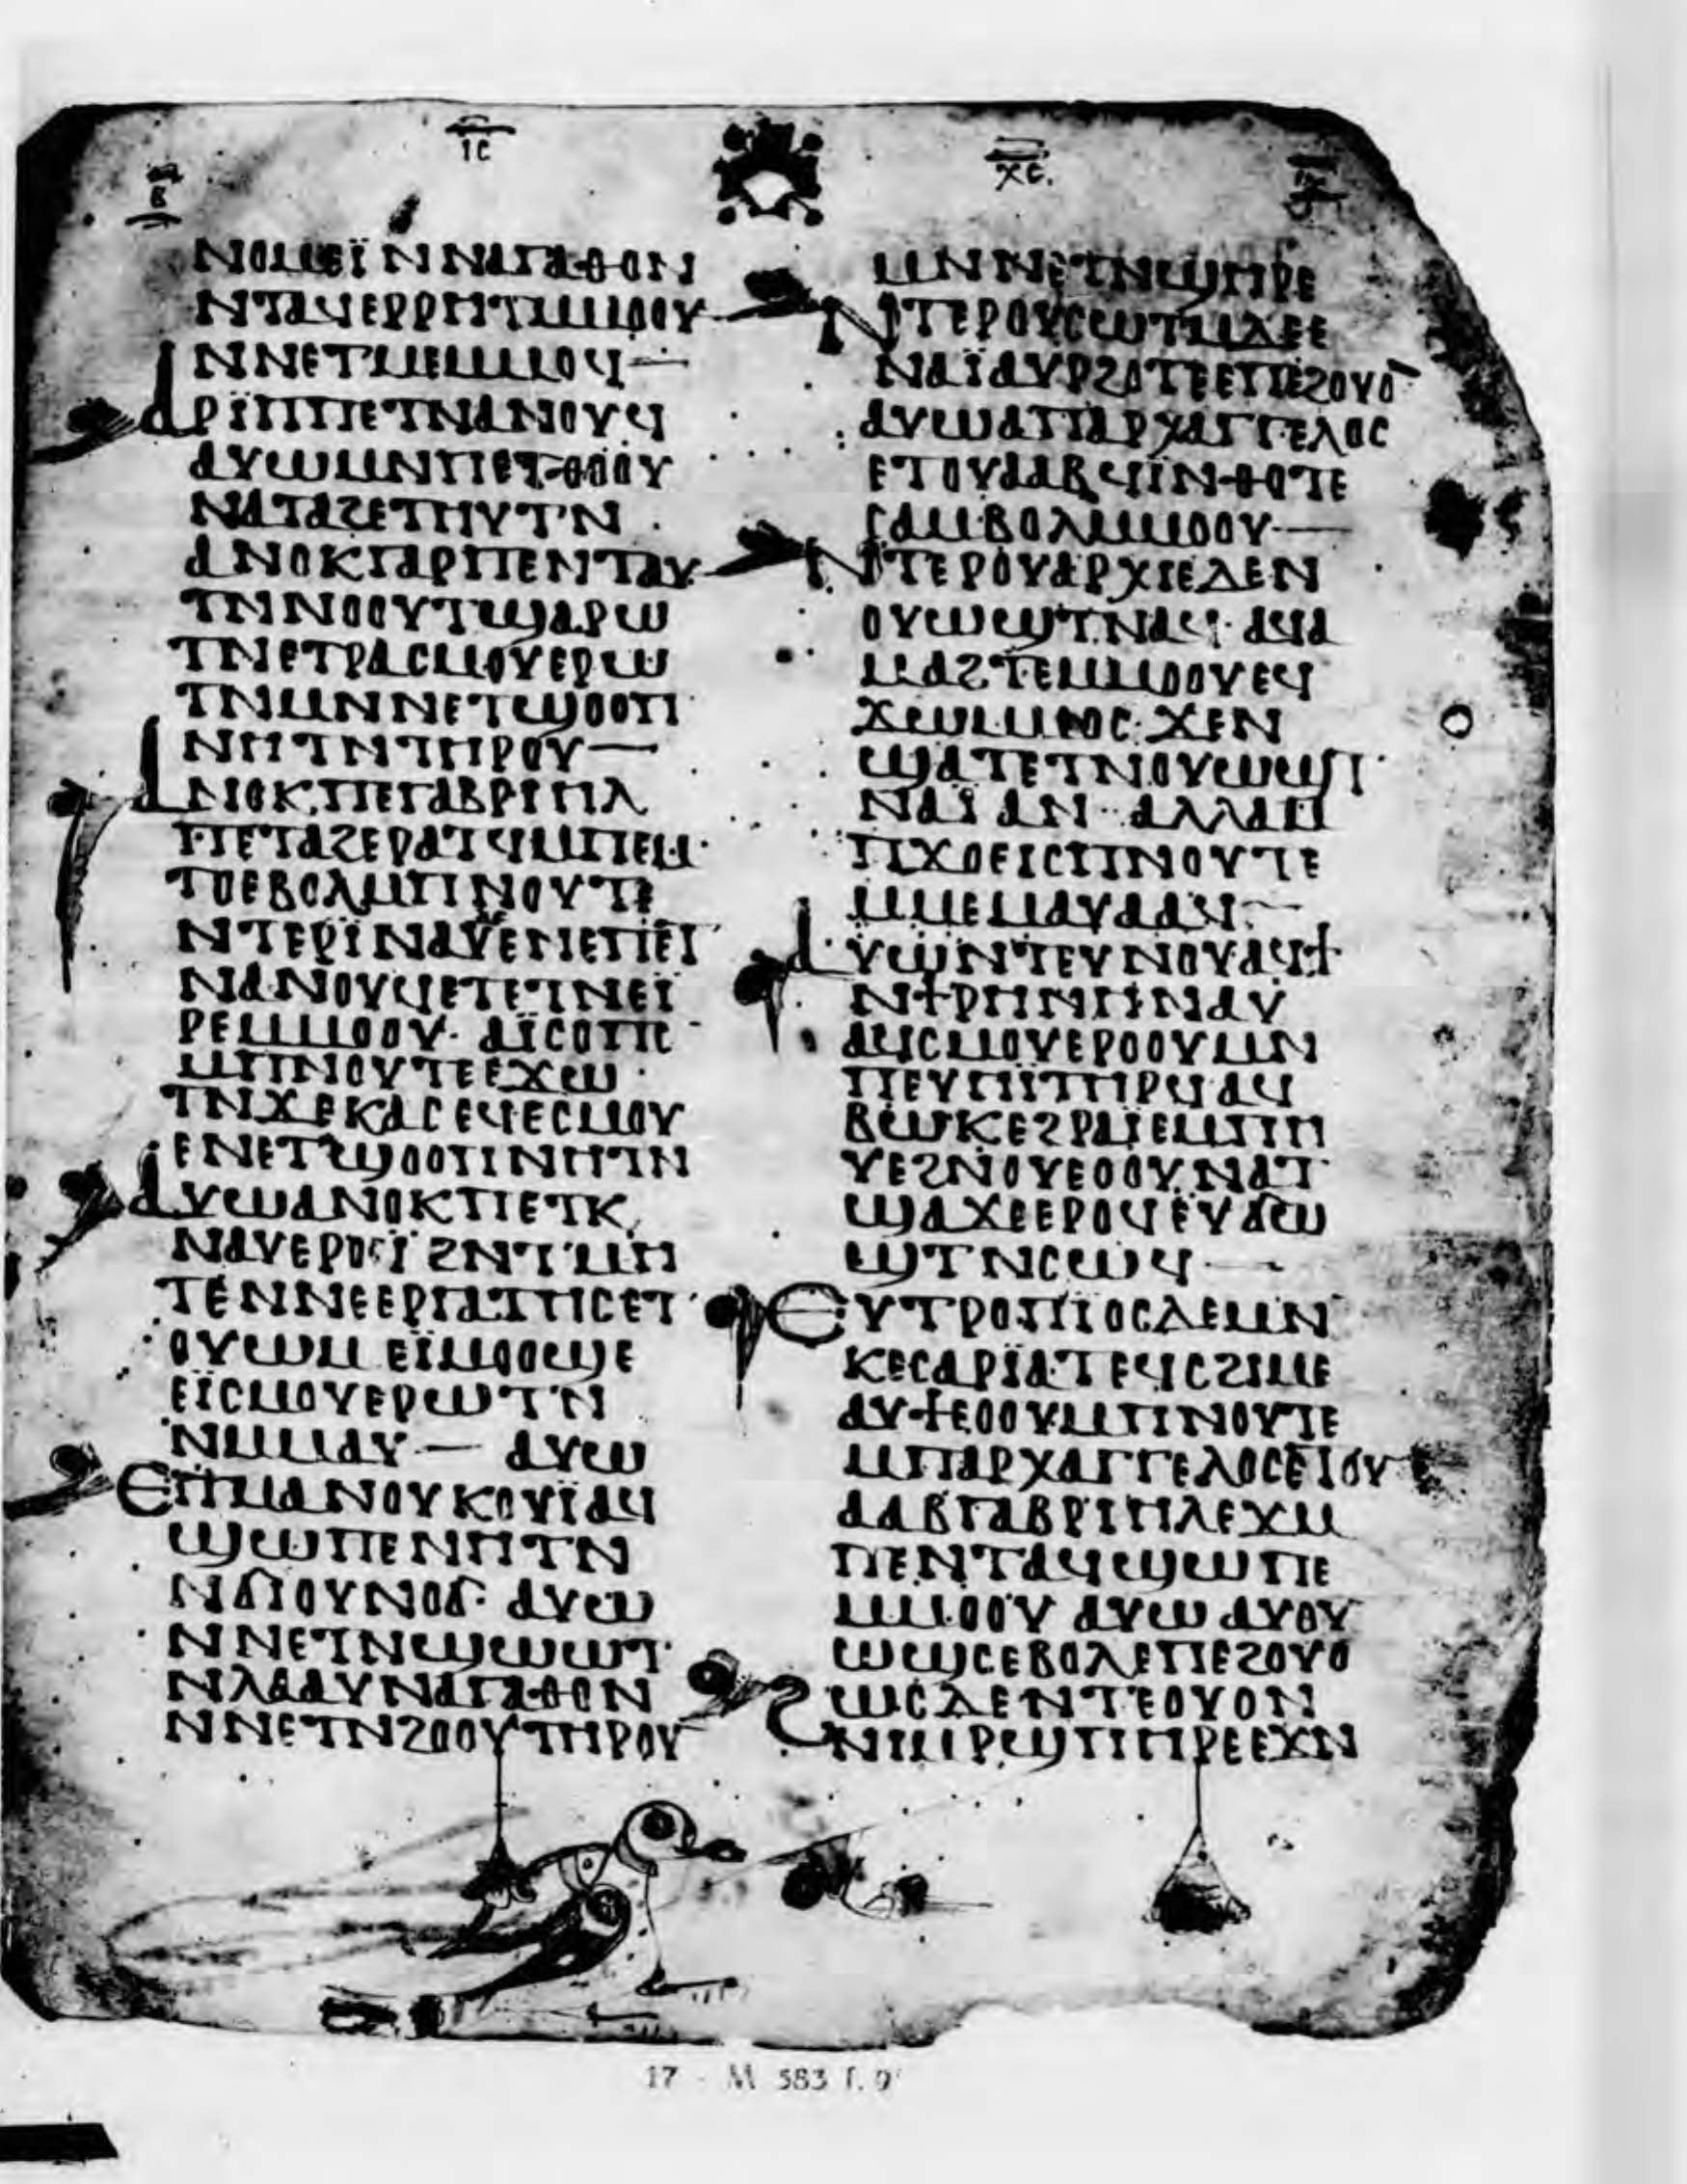 ⲓⲥ ⲭⲥ
ⲛⲟⲙⲉⲓ̈ⲛⲛⲁⲅⲁⲑⲟⲛ
ⲛⲧⲁϥⲉⲣⲣⲏⲧⲙⲙⲟⲟⲩ
ⲛⲛⲉⲧⲙⲉⲙⲙⲟϥ—
ⲁⲣⲓ̈ⲡⲡⲉⲧⲛⲁⲛⲟⲩϥ
ⲁⲩⲱⲙⲛⲡⲉⲧⲑⲟⲟⲩ
ⲛⲁⲧⲁϩⲉⲧⲏⲩⲧⲛ
ⲁⲛⲟⲕⲅⲁⲣⲡⲉⲛⲧⲁⲩ
ⲧⲛⲛⲟⲟⲩⲧϣⲁⲣⲱ
ⲧⲛⲉⲧⲣⲁⲥⲙⲟⲩⲉⲣⲱ
ⲧⲛⲙⲛⲛⲉⲧϣⲟⲟⲡ
ⲛⲏⲧⲛⲧⲏⲣⲟⲩ—
ⲁⲛⲟⲕⲡⲉⲅⲁⲃⲣⲓⲏⲗ
ⲡⲉⲧⲁϩⲉⲣⲁⲧϥⲙⲡⲉⲙ
ⲧⲟⲉⲃⲟⲗⲙⲡⲛⲟⲩⲧⲉ
ⲛⲧⲉⲣⲓ̈ⲛⲁⲩⲉⲛⲉⲡⲉⲧ
ⲛⲁⲛⲟⲩϥⲉⲧⲉⲧⲛⲉⲓ̈
ⲣⲉⲙⲙⲟⲟⲩ· ⲁⲓ̈ⲥⲟⲡⲥ
ⲙⲡⲛⲟⲩⲧⲉⲉϫⲱ
ⲧⲛϫⲉⲕⲁⲥⲉϥⲉⲥⲙⲟⲩ
ⲉⲛⲉⲧϣⲟⲟⲡⲛⲏⲧⲛ
ⲁⲩⲱⲁⲛⲟⲕⲡⲉⲧⲕ
ⲛⲁⲩⲉⲣⲟⲉⲓ ϩⲛⲧⲙⲏ
ⲧⲉⲛⲛⲉⲉⲣⲅⲁⲧⲏⲥⲉⲧ
ⲟⲩⲱⲙ ⲉⲓ̈ⲙⲟⲟϣⲉ
ⲉⲓ̈ⲥⲙⲟⲩⲉⲣⲱⲧⲛ
ⲛⲙⲙⲁⲩ— ⲁⲩⲱ
ⲉⲡⲙⲁⲛⲟⲩⲕⲟⲩⲓ̈ⲁϥ
ϣⲱⲡⲉⲛⲏⲧⲛ
ⲛϭⲓⲟⲩⲛⲟϭ· ⲁⲩⲱ
ⲛⲛⲉⲧⲛϣⲱⲱⲧ
ⲛⲗⲁⲁⲩⲛⲁⲅⲁⲑⲟⲛ
ⲛⲛⲉⲧⲛϩⲟⲟⲩⲧⲏⲣⲟⲩ
ⲙⲛⲛⲉⲧⲛϣⲏⲣⲉ
ⲛⲧⲉⲣⲟⲩⲥⲱⲧⲙⲇⲉⲉ
ⲛⲁⲓ̈ⲁⲩⲣϩⲟⲧⲉⲉⲡⲉϩⲟⲩⲟ
ⲁⲩⲱⲁⲡⲁⲣⲭⲁⲅⲅⲉⲗⲟⲥ
ⲉⲧⲟⲩⲁⲁⲃϥⲓ̈ⲛⲑⲟⲧⲉ
ⲥⲁⲙⲃⲟⲗⲙⲙⲟⲟⲩ—
ⲛⲧⲉⲣⲟⲩⲁⲣⲭⲓⲉⲇⲉⲛ
ⲟⲩⲱϣⲧⲛⲁϥ· ⲁϥⲁ
ⲙⲁϩⲧⲉⲙⲙⲟⲟⲩⲉϥ
ϫⲱⲙⲙⲟⲥ· ϫⲉⲛ
ϣⲁⲧⲉⲧⲛⲟⲩⲱϣⲧ
ⲛⲁⲓ̈ ⲁⲛ· ⲁⲗⲗⲁⲙ
ⲡϫⲟⲉⲓⲥⲡⲛⲟⲩⲧⲉ
ⲙⲙⲉⲙⲁⲩⲁⲁϥ·—
ⲁⲩⲱⲛⲧⲉⲩⲛⲟⲩⲁϥϯ
ⲛϯⲣⲏⲛⲏⲛⲁⲩ
ⲁϥⲥⲙⲟⲩⲉⲣⲟⲟⲩⲙⲛ
ⲡⲉⲩⲏⲓ̈ⲧⲏⲣϥⲁϥ
ⲃⲱⲕⲉϩⲣⲁⲓ̈ⲉⲙⲡⲏ
ⲩⲉϩⲛⲟⲩⲉⲟⲟⲩ ⲛⲁⲧ
ϣⲁϫⲉⲉⲣⲟϥⲉⲩϭⲱ
ϣⲧⲛⲥⲱϥ—
ⲉⲩⲧⲣⲟⲡⲓⲟⲥⲇⲉⲙⲛ
ⲕⲉⲥⲁⲣⲓ̈ⲁⲧⲉϥⲥϩⲓⲙⲉ
ⲁⲩϯⲉⲟⲟⲩⲙⲡⲛⲟⲩⲧⲉ
ⲙⲡⲁⲣⲭⲁⲅⲅⲉⲗⲟⲥⲉⲧⲟⲩ
ⲁⲁⲃⲅⲁⲃⲣⲓⲏⲗⲉϫⲙ
ⲡⲉⲛⲧⲁϥϣⲱⲡⲉ
ⲙⲙⲟⲟⲩ ⲁⲩⲱ ⲁⲩⲟⲩ
ⲱϣⲥⲉⲃⲟⲗⲉⲡⲉϩⲟⲩⲟ
ϩⲱⲥⲇⲉⲛⲧⲉⲟⲩⲟⲛ
ⲛⲓⲙⲣϣⲡⲏⲣⲉⲉϫⲛ
17 - M 583 f. 9